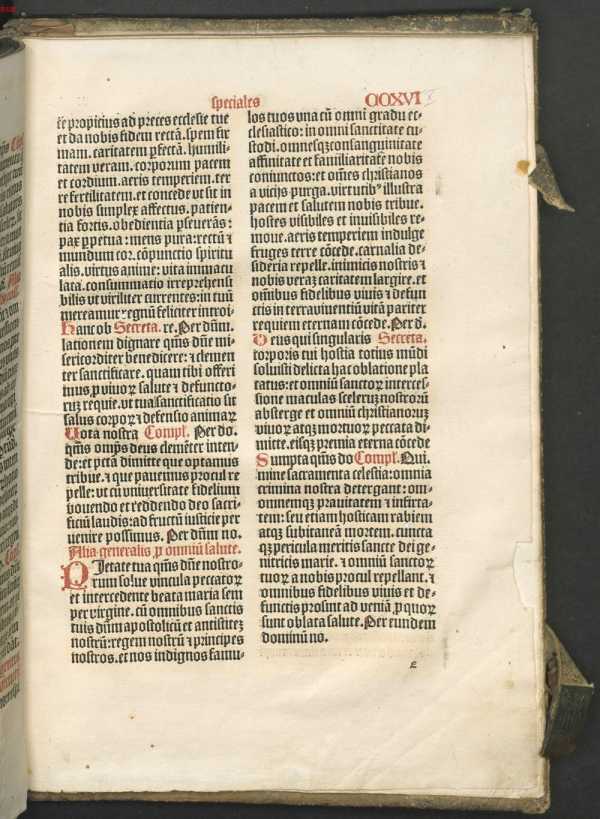 speciales
CCXVI
ẽe propicius ad preces ecclesie tue
et da nobis fidem rectã. spem fir
mam. caritatem ꝑfectã. humili-
tatem veram. corporum pacem
et cordium. aeris temperiem. ter
re fertilitatem. et concede vt sit in
nobis simplex affectus. patien-
tia fortis. obedientia ꝑseuerãs:
pax ꝑpetua: mens pura: rectũ ⁊
mundum cor. cõpunctio spiritu
alis. virtus anime: vita immacu
lata. consummatio irreprehensi
bilis vt viriliter currentes: in tuũ
mereamur regnũ feliciter introi-
Hanc ob Secreta. re. Per dñm.
lationem dignare qm̃s dñe mi-
sericorditer benedicere: ⁊ clemen
ter sanctificare. quam tibi offeri
mus ꝓ viuoꝝ salute ⁊ defuncto-
ruꝫ requie. vt tua sanctificatio sit
salus corpoꝝ ⁊ defensio animaꝝ
Uota nostra Compl. Per do.
qm̃s omp̃s deus clemẽter inten-
de: et pctã dimitte que optamus
tribue. ⁊ que pauemus ꝓcul re
pelle: vt cũ vniuersitate fidelium
vouendo et reddendo deo sacri-
ficiũ laudis: ad fructũ iusticie per
uenire possimus. Per dñm no.
Alia generalis ꝓ omniũ salute.
Pietate tua qm̃s dñe nostro-
rum solue vincula peccatoꝝ
et intercedente beata maria sem
per virgine. cũ omnibus sanctis
tuis dñum apostolicũ et antistiteꝫ
nostrũ: regem nostrũ ⁊ principes
nostros. et nos indignos famu-
los tuos vna cũ omni gradu ec-
clesiastico: in omni sanctitate cu-
stodi. omnesqꝫ consanguinitate
affinitate et familiaritate nobis
coniunctos: et om̃es christianos
a vicijs purga. virtutibꝰ illustra
pacem et salutem nobis tribue.
hostes visibiles et inuisibiles re-
moue. aeris temperiem indulge
fruges terre cõcede. carnalia de-
sideria repelle. inimicis nostris ⁊
nobis veraꝫ caritatem largire. et
om̃ibus fidelibus viuis et defun
ctis in terra viuentiũ vitã pariter
requiem eternam cõcede. Per d.
Deus qui singularis Secreta.
corporis tui hostia totius mũdi
soluisti delicta hac oblatione pla
catus: et omniũ sanctoꝝ interces-
sione maculas sceleruꝫ nostroruꝫ
absterge et omniũ christianoruꝫ
viuoꝝ atqꝫ mortuoꝝ peccata di-
mitte. eisqꝫ premia eterna cõcede
Sumpta qm̃s do Compl. Qui.
mine sacramenta celestia: omnia
crimina nostra detergant: om-
onmemqꝫ prauitatem ⁊ infirta-
tem: seu etiam hosticam rabiem
atqꝫ subitaneã mortem. cuncta
qꝫ pericula meritis sancte dei ge-
nitricis marie. ⁊ omniũ sanctoꝝ
tuoꝝ a nobis procul repellant. ⁊
omnibus fidelibus viuis et de-
functis prosint ad veniã ꝓ quoꝝ
sunt oblata salute. Per eundem
dominũ no.